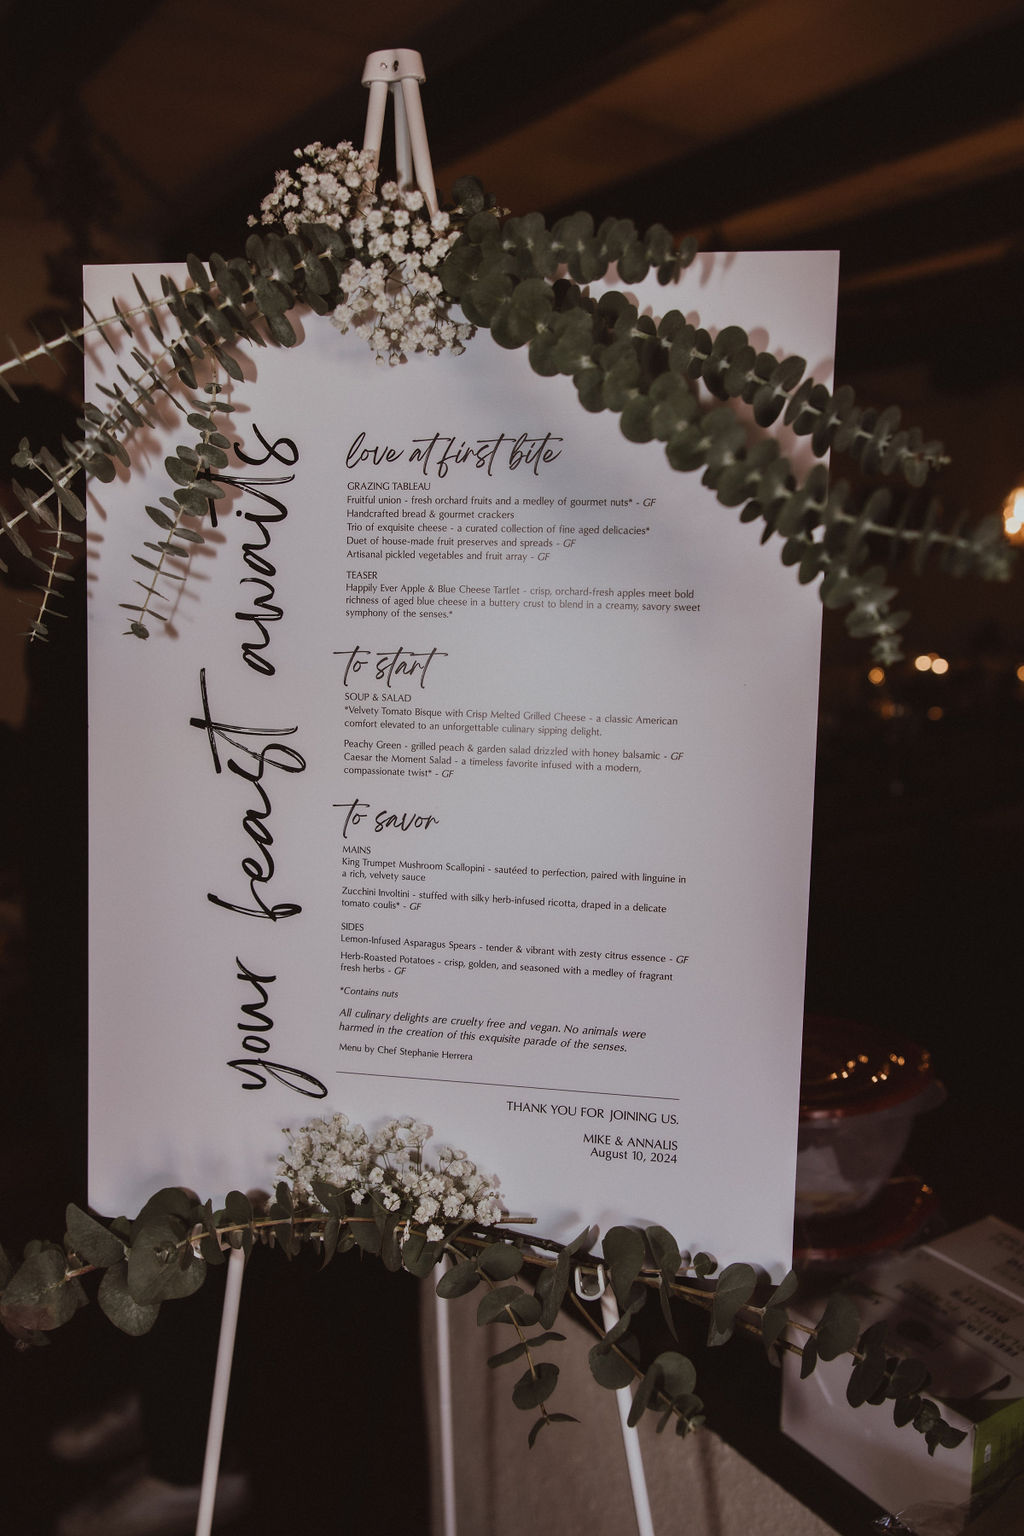 your feast awaits
love at first bite
GRAZING TABLEAU
Fruitful union - fresh orchard fruits and a medley of gourmet nuts* - GF
Handcrafted bread & gourmet crackers
Trio of exquisite cheese - a curated collection of fine aged delicacies*
Duet of house-made fruit preserves and spreads - GF
Artisanal pickled vegetables and fruit array - GF
TEASER
Happily Ever Apple & Blue Cheese Tartlet - crisp, orchard-fresh apples meet bold
richness of aged blue cheese in a buttery crust to blend in a creamy, savory sweet
symphony of the senses.*
to start
SOUP & SALAD
*Velvety Tomato Bisque with Crisp Melted Grilled Cheese - a classic American
comfort elevated to an unforgettable culinary sipping delight.
Peachy Green - grilled peach & garden salad drizzled with honey balsamic - GF
Caesar the Moment Salad - a timeless favorite infused with a modern,
compassionate twist* - GF
to savor
MAINS
King Trumpet Mushroom Scallopini - sautéed to perfection, paired with linguine in
a rich, velvety sauce
Zucchini Involtini - stuffed with silky herb-infused ricotta, draped in a delicate
tomato coulis* - GF
SIDES
Lemon-Infused Asparagus Spears - tender & vibrant with zesty citrus essence - GF
Herb-Roasted Potatoes - crisp, golden, and seasoned with a medley of fragrant
fresh herbs - GF
*Contains nuts
All culinary delights are cruelty free and vegan. No animals were
harmed in the creation of this exquisite parade of the senses.
Menu by Chef Stephanie Herrera
THANK YOU FOR JOINING US.
MIKE & ANNALIS
August 10, 2024